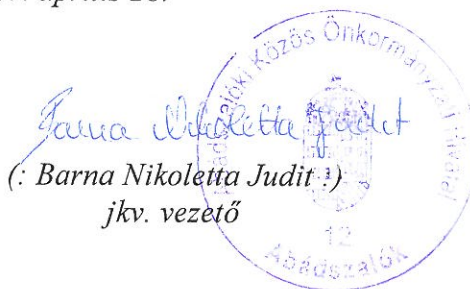 április 28.
Barna Nikoletta Judit
(: Barna Nikoletta Judit :)
jkv. vezető
Abádszalóki Közös Önkormányzati Hivatal
12
Abádszalók